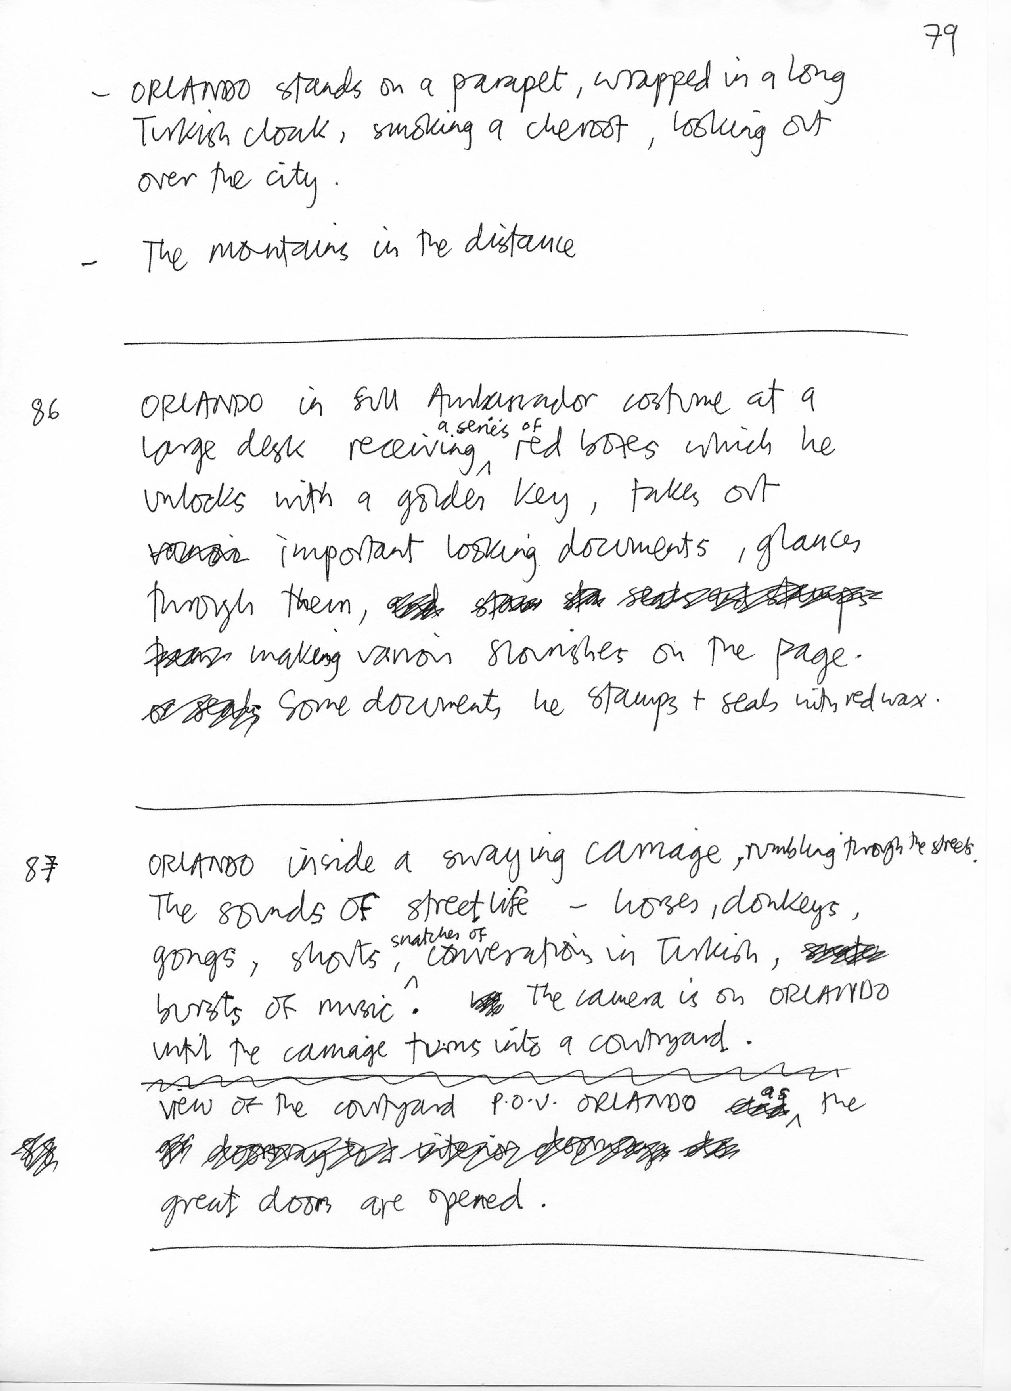 79
- ORLANDO stands on a parapet, wrapped in a long
Turkish cloak, smoking a cheroot, looking out
over the city.
- The mountains in the distance
86 ORLANDO in full Ambassador costume at a
a series of
large desk receiving ^ red boxes which he
unlocks with a golden key, takes out
various important looking documents, glances
through them, and seals and stamps
making various flourishes on the page.
or seals Some documents he stamps + seals with red wax.
87 ORLANDO inside a swaying carriage, rumbling through the streets.
The sounds of street life - horses, donkeys,
snatches of
gongs, shouts, ^ conversations in Turkish,
bursts of music. The camera is on ORLANDO
until the carriage turns into a courtyard.
as
view of the courtyard P.O.V. ORLANDO ^ the
great doors are opened.